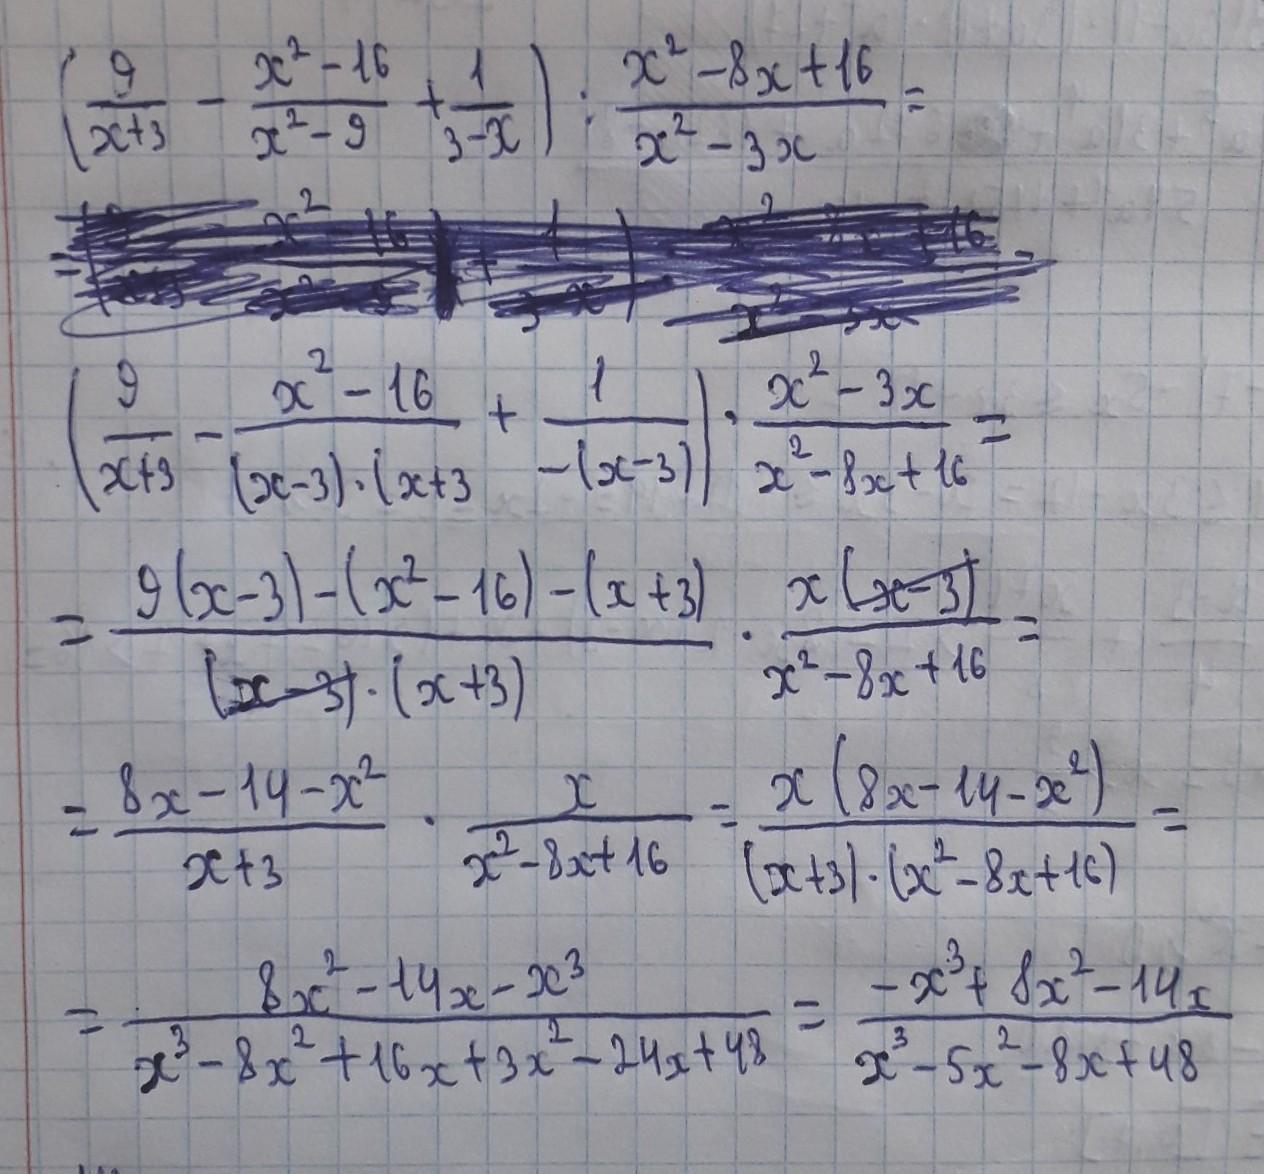 (9/(x+3) - (x²-16)/(x²-9) + 1/(3-x)) : (x²-8x+16)/(x²-3x) =
(9/(x+3) - (x²-16)/((x-3)·(x+3) + 1/(-(x-3))) · (x²-3x)/(x²-8x+16) =
= (9(x-3)-(x²-16)-(x+3))/((x-3)·(x+3)) · x(x-3)/(x²-8x+16) =
= (8x-14-x²)/(x+3) · x/(x²-8x+16) = x(8x-14-x²)/((x+3)·(x²-8x+16)) =
= (8x²-14x-x³)/(x³-8x²+16x+3x²-24x+48) = (-x³+8x²-14x)/(x³-5x²-8x+48)